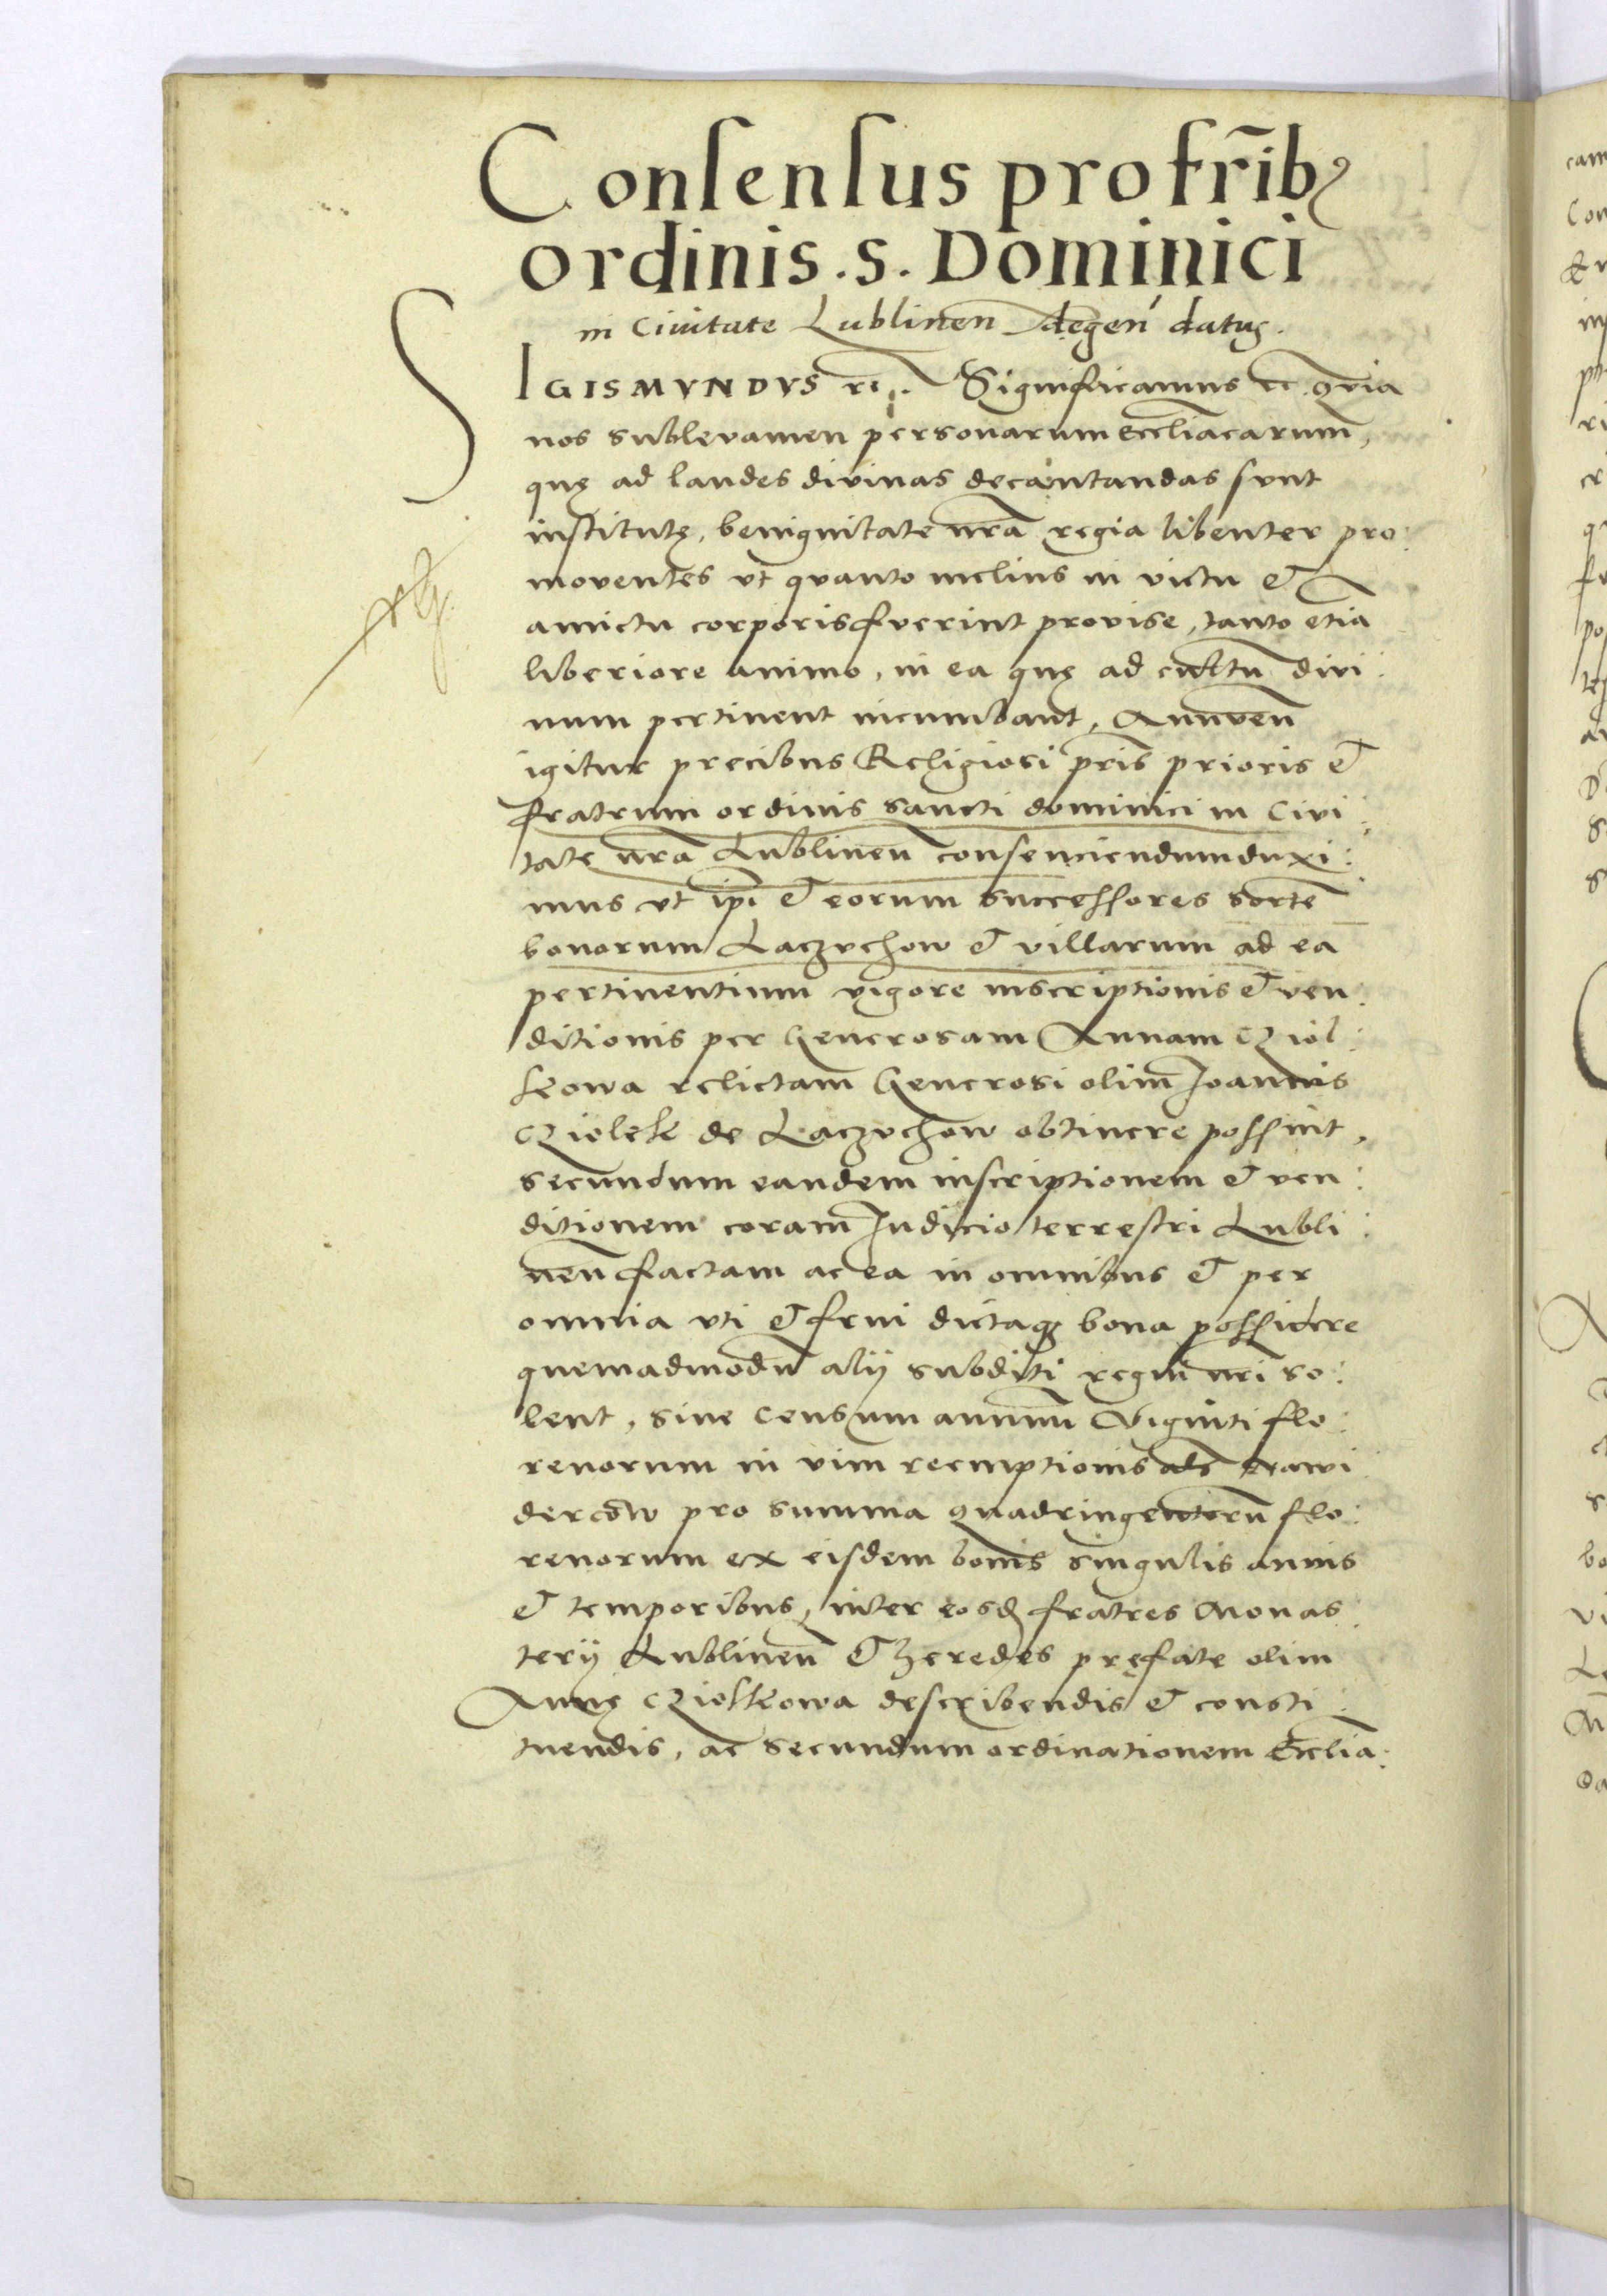 Consensus pro fr̃ibꝫ
ordinis . s . Dominici
in Ciuitate Lublinen̄ degen̄ datus.
SIGISMVNDVS rc̄. Significamus rc̄ quia
nos sublevamen personarum Eccl̄iacarum,
quę ad laudes divinas decantandas sunt
institutę, benignitate nr̄a regia libenter pro:
moventes vt quanto melius in victu et
amictu corporis fverint provise, tanto etiā
liberiore animo, in ea quę ad cultū divi:
num pertinent incumbant, Annven̄
igitur precibus Religiosi pr̄is prioris et
fratrum ordinis sancti dominici in Civi:
tate nr̄a Lublinen̄ consenciendum duxi:
mus vt ip̄i et eorum successores sortē
bonorum Laczvchow et villarum ad ea
pertinentium vigore inscriptionis et ven:
ditionis per Generosam Annam Cziol:
kowa relictam Generosi olim Joannis
Cziolek de Laczvchow obtinere possint,
secundum eandem inscriptionem et ven:
ditionem coram Judicio terrestri Lubli:
nen̄ factam ac ea in omnibus et per
omnia vti et frui dictaqꝫ bona possidere
quemadmodū alij subditi regni nr̄i so:
lent, sive Censum annuū Viginti flo:
renorum in vim reemptionis al̄s
dercow pro summa quadringentorū flo:
renorum ex eisdem bonis singulis annis
et temporibus, inter eosd̄ fratres Monas:
terij Lublinen̄ et heredes pręfate olim
Annę Cziolkowa describendis et consti:
tuendis, ac secundum ordinationem Eccl̄ia: